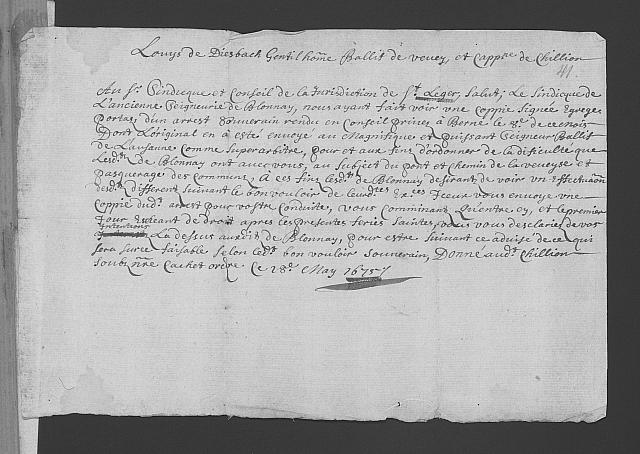 Louys de Diesbach Gentilhome Ballif de vevey, et Cappne de Chillion
41
Au Sr. Sindicque et Conseil de la Jurisdiction de St. Leger, Salut; Le Sindicque de
L'ancienne Seigneurie de Blonnay, nous ayant fait voir une Coppie Signée
Portas, d'un arrest Souverain rendu en Conseil Privé à Berne le de ce mois
Dont L'original en à esté envoyé au Magnifique et Puissant Seigneur Ballif
de Lausanne Comme Superarbitre, Pour et aux fins d'ordonner de la dificulté que
Lesdts de Blonnay ont avec vous, au Subject du Pont et Chemin de la veveyse et
Pasquerage des Communs, A ces fins lesdts de Blonnay, desirant de voir un effectuaon
desdts different Suivant le bon vouloir de leursdtes Exces Jeux vous envoye une
Coppie dudt arrest pour vostre Conduite, vous Comminant qu'entre cy, et le premier
Jour de droit apres les presentes feries Saintes, vous vous desclariés de vos
Intentions
La dessus auxdts de Blonnay, pour estre Suivant ce advisé de ce qui
sera sur ce faisable Selon ledt bon vouloir Souverain, Donné audt Chillion
Soubz nre Cachet ordre Ce 28e May 1675